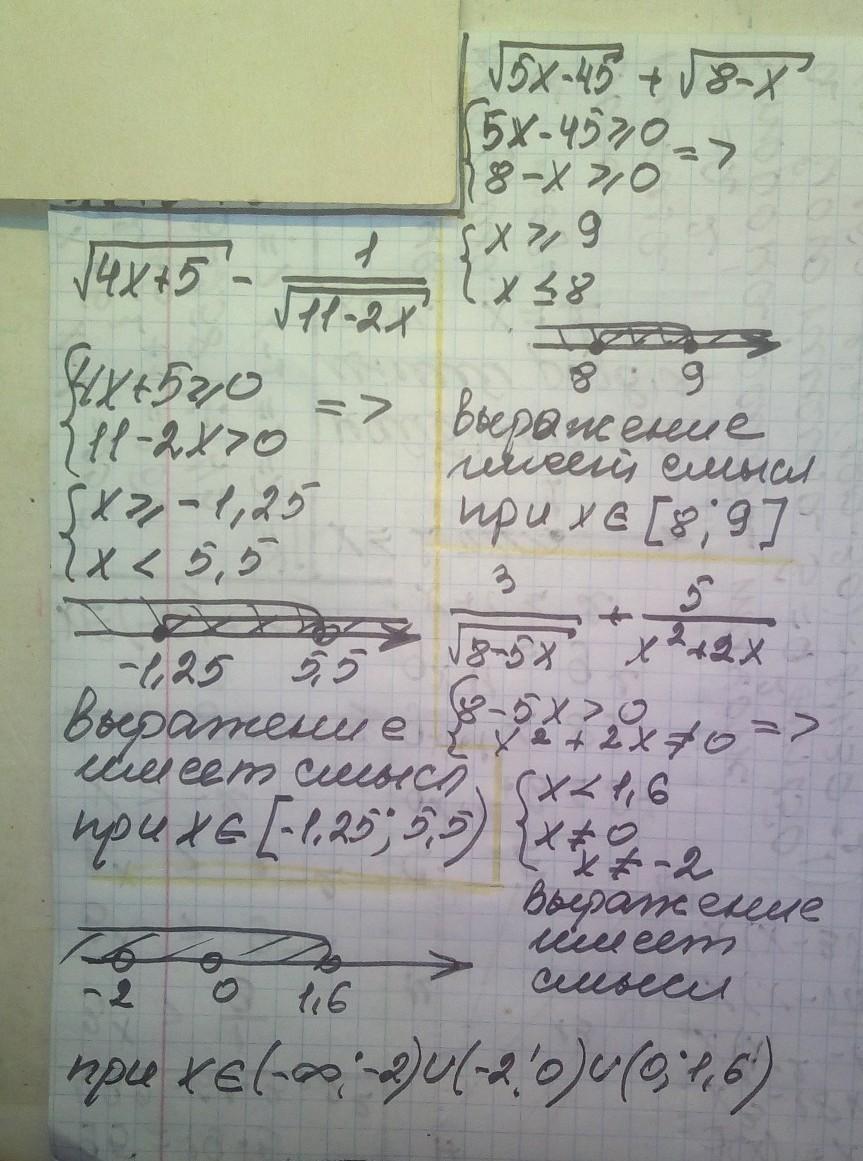 √(5x-45) + √(8-x)
{5x-45⩾0
{8-x⩾0 =>
{x⩾9
{x≤8
8 9
выражение
имеет смысл
при x∈[8;9]
√(4x+5) - 1/√(11-2x)
{4x+5⩾0
{11-2x>0 =>
{x⩾-1,25
{x<5,5
-1,25 5,5
выражение
имеет смысл
при x∈[-1,25;5,5)
3/√(8-5x) + 5/(x²+2x)
{8-5x>0
{x²+2x≠0 =>
{x<1,6
{x≠0
x≠-2
выражение
имеет
смысл
-2 0 1,6
при x∈(-∞;-2)∪(-2;0)∪(0;1,6)